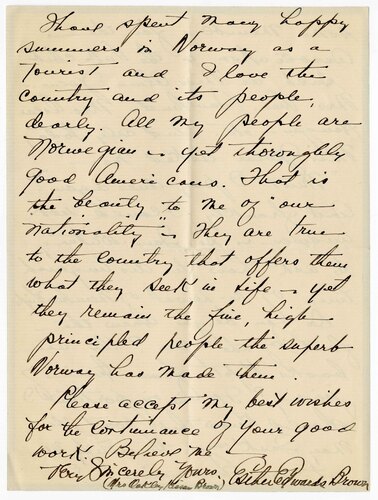 I have spent many happy
summers in Norway as a
tourist and I love the
country and its people,
dearly. All my people are
Norwegian - yet thoroughly
good Americans. That is
the beauty to me of "our
nationality" - They are true
to the country that offers them
what they seek in life - yet
they remain the fine, high
principled people the superb
Norway has made them.
Please accept my best wishes
for the continuance of your good
work. Believe me -
Very Sincerely Yours,
Esther Edwards Brower
(Mrs Oakley Brower)